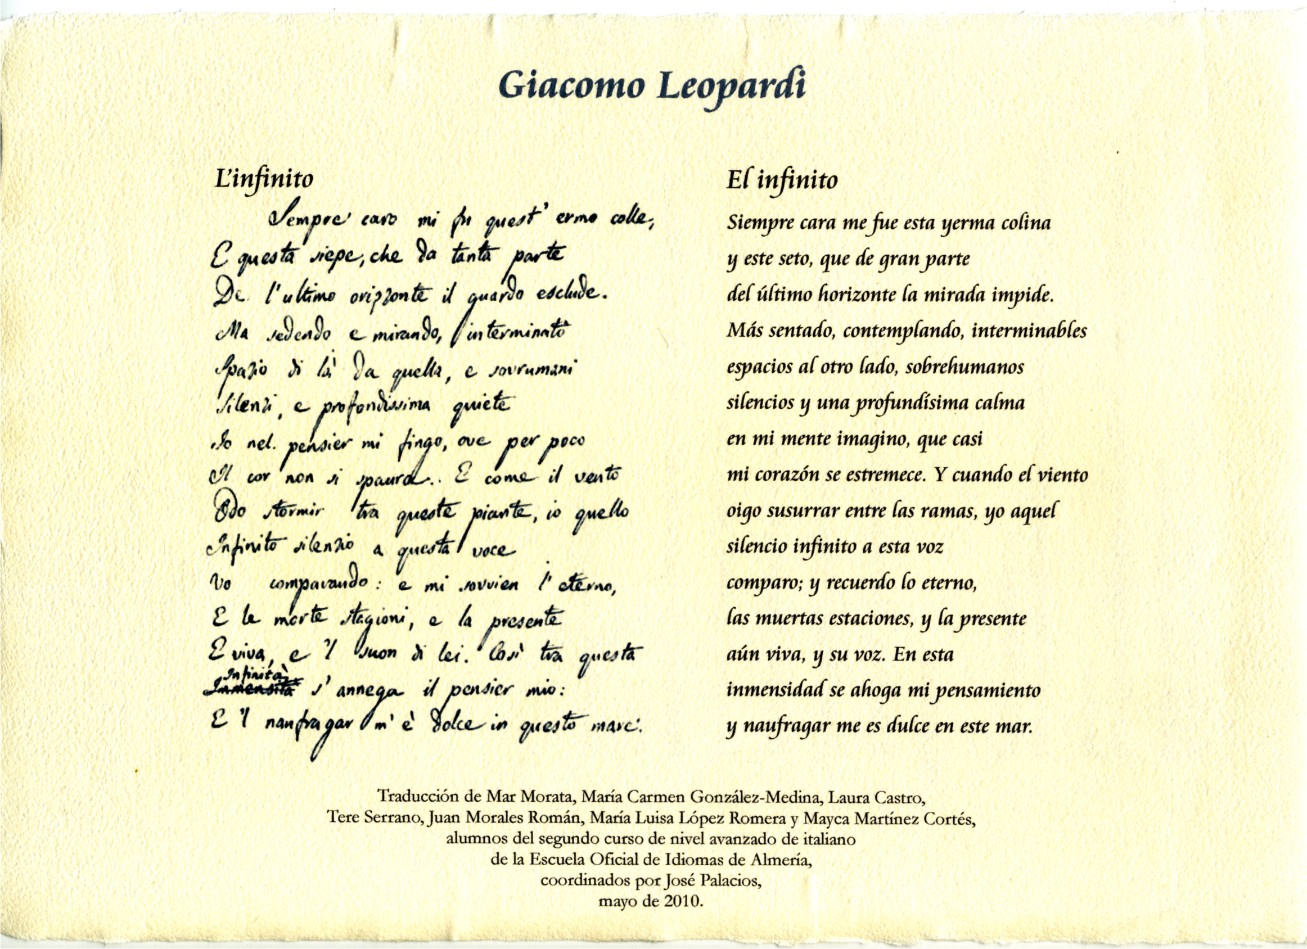 Giacomo Leopardi
L'infinito
Sempre caro mi fu quest' ermo colle,
E questa siepe, che da tanta parte
De l'ultimo orizzonte il guardo esclude.
Ma sedendo e mirando, interminato
Spazio di là da quella, e sovrumani
Silenzi, e profondissima quiete
Io nel pensier mi fingo, ove per poco
Il cor non si spaura. E come il vento
Odo stormir tra queste piante, io quello
Infinito silenzio a questa voce
Vo comparando: e mi sovvien l'eterno,
E le morte stagioni, e la presente
E viva, e 'l suon di lei. Così tra questa
Infinità
Immensità s'annega il pensier mio:
E 'l naufragar m'è dolce in questo mare.
El infinito
Siempre cara me fue esta yerma colina
y este seto, que de gran parte
del último horizonte la mirada impide.
Más sentado, contemplando, interminables
espacios al otro lado, sobrehumanos
silencios y una profundísima calma
en mi mente imagino, que casi
mi corazón se estremece. Y cuando el viento
oigo susurrar entre las ramas, yo aquel
silencio infinito a esta voz
comparo; y recuerdo lo eterno,
las muertas estaciones, y la presente
aún viva, y su voz. En esta
inmensidad se ahoga mi pensamiento
y naufragar me es dulce en este mar.
Traducción de Mar Morata, María Carmen González-Medina, Laura Castro,
Tere Serrano, Juan Morales Román, María Luisa López Romera y Mayca Martínez Cortés,
alumnos del segundo curso de nivel avanzado de italiano
de la Escuela Oficial de Idiomas de Almería,
coordinados por José Palacios,
mayo de 2010.